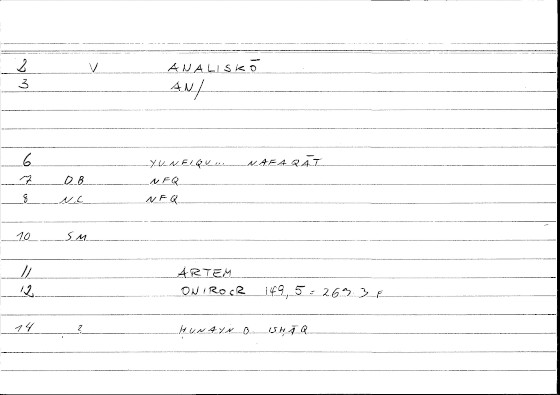 2 V ANALISKŌ
3 AN/
6 YUNFIQU... NAFAQĀT
7 D.B NFQ
8 N.C NFQ
10 SM
11 ARTEM
12 ONIROCR 149,5 =
14 ? ḤUNAYN B. ISḤĀQ